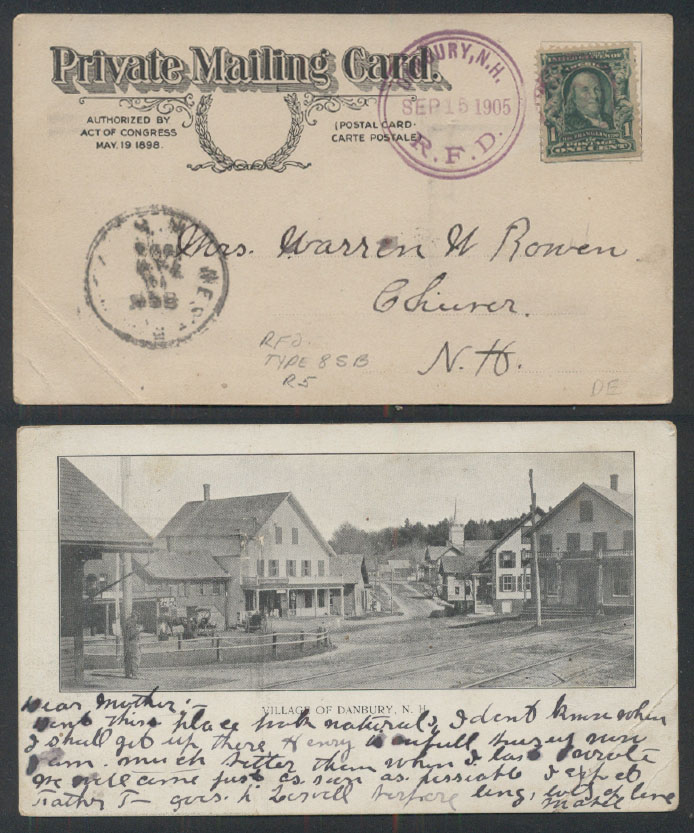 Private Mailing Card.
AUTHORIZED BY
ACT OF CONGRESS
MAY, 19 1898.
(POSTAL CARD-
CARTE POSTALE)
BURY, N.H.
SEP 15 1905
R.F.D.
1 1
POSTAGE
ONE CENT
Mrs. Warren W Rowen
N.H.
RFD.
TYPE 8SB
R5
DE
VILLAGE OF DANBURY, N. H.
Dear Mother:-
place look natural, I dont know when
I shall get up there Henry is awfull now
I am much better than when I last wrote
we will come just as soon as possiable I expect
Father T— goes to before long, lots of love
Mabel